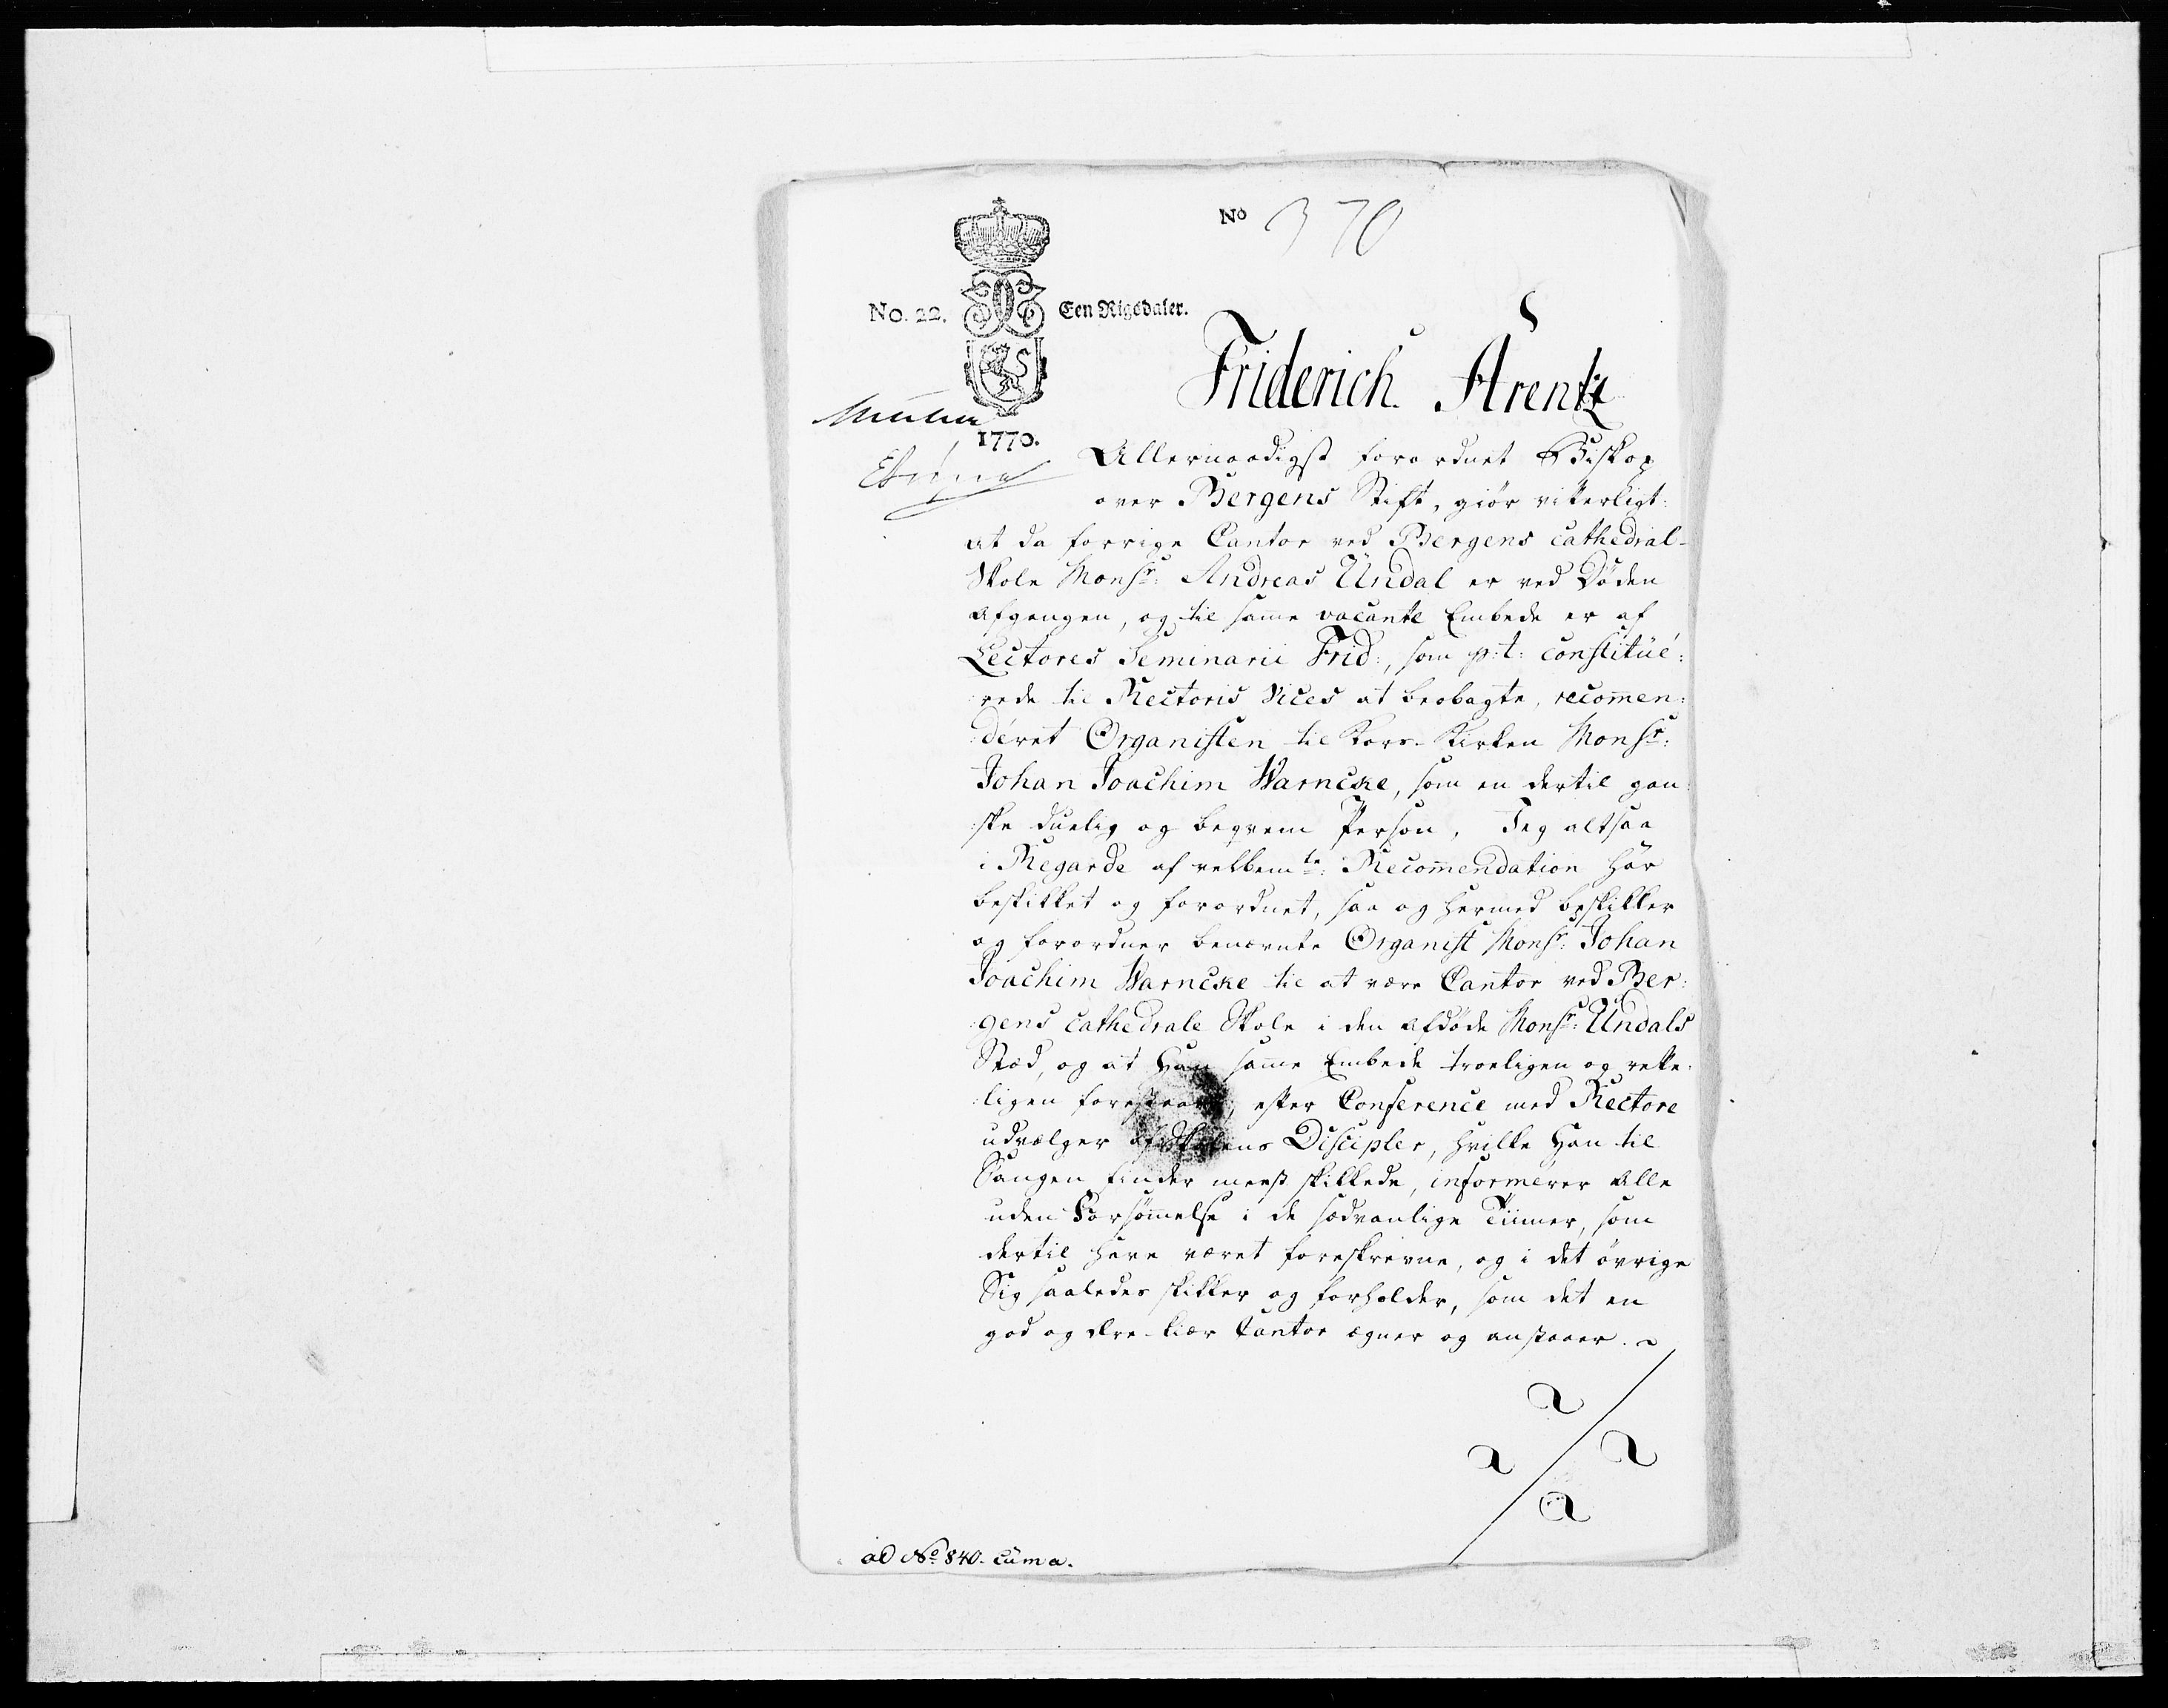 No 370
No. 22. Een Rigsdaler.
Friderich Arentz
1770.
Allernaadigst forordnet Biskop
over Bergens Stift, giör vitterligt:
at da forrige Cantor ved Bergens Cathedral-
Skole Monsr: Andreas Ündal er ved Döden
afgangen, og til samme vacante Embede er af
Lectores Seminarii Frid:, som p: t: constitüé:
rede til Rectoris Vices at beobagte, recommen:
déret Organisten til Kors-Kirken Monsr:
Johan Joachim Warncke, som en dertil gan:
ske duelig og beqvem Person, Jeg altsaa
i Regarde af velbemte: Recommendation har
beskikket og forordnet, saa og hermed beskikker
og forordner benævnte Organist Monsr: Johan
Joachim Warncke til at være Cantor ved Ber:
gens Cathedrale Skole i den afdöde Monsr: Ündals
Stæd, og at Han samme Embede troeligen og rette:
ligen forestaaer, efter Conference med Rectore
udvælger af Skolens Discipler, hvilke Han til
Sangen finder meest skikkede, informérer alle
uden Forsömmelse i de sædvanlige Tiimer, som
dertil have været foreskrevne, og i det övrige
Sig saaledes skikker og forholder, som det en
god og ære-kiær Cantor egner og anstaaer.
ad No: 840. cüm a.